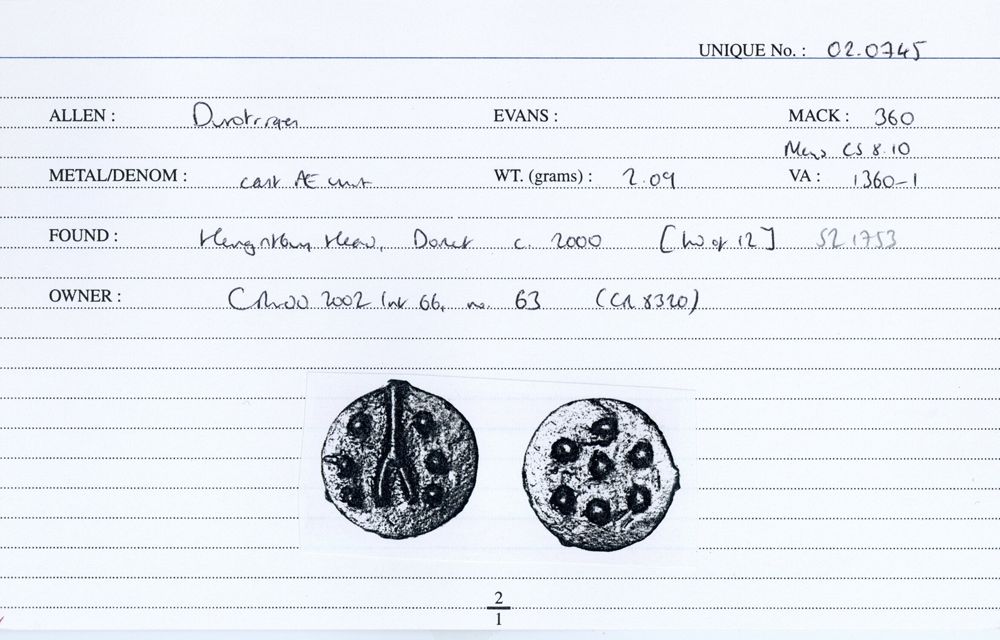 UNIQUE No. : 02.0745
ALLEN : Durotriges EVANS : MACK : 360
CS 8.10
METAL/DENOM : cast Æ unit WT. (grams) : 2.09 VA : 1360-1
FOUND : Hengistbury Head, Dorset c. 2000 [ of 12] SZ 1753
OWNER : 2002 66, no. 63 (CR 8320)
2
1